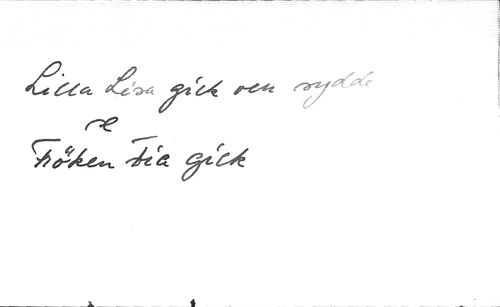 Lilla Lisa gick och sydde
se
Fröken Fia gick